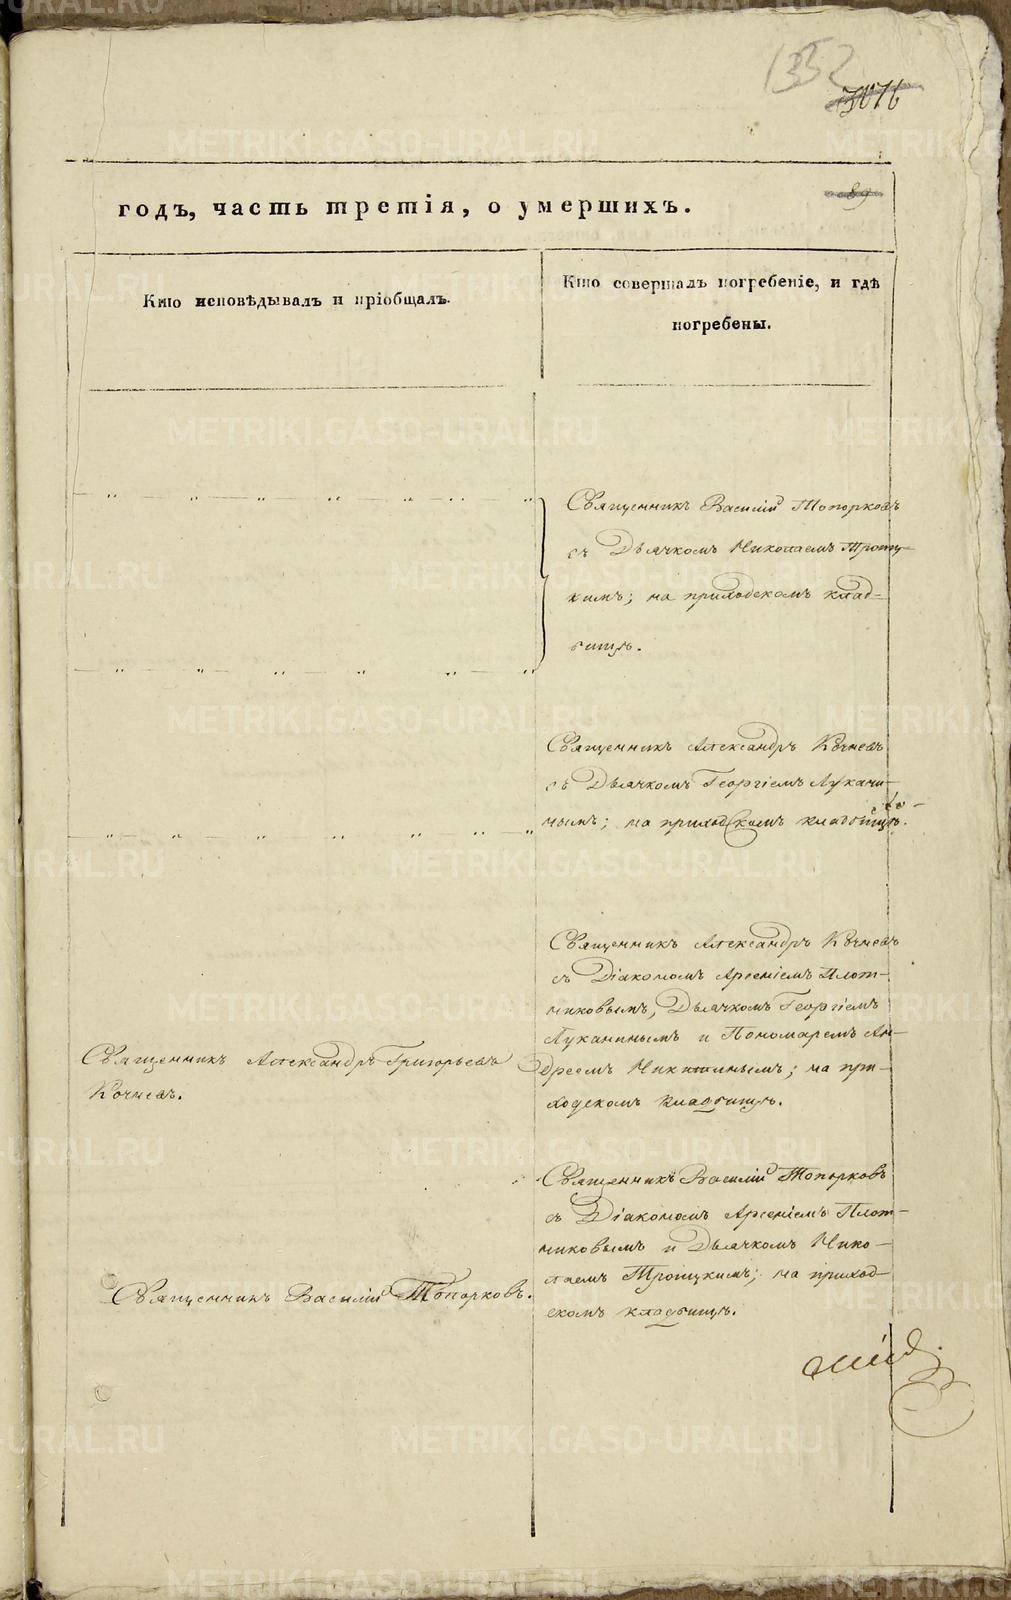 1352
годъ, часть третія, о умершихъ.
89
Кто исповѣдывалъ и пріобщалъ.
Кто совершалъ погребеніе, и гдѣ
погребены.
Священникъ Василій Топорковъ
съ Дьячкомъ Николаемъ Троиц-
кимъ; на приходскомъ клад-
бищѣ.
Священникъ Александръ Кочневъ
съ Дьячкомъ Георгіемъ Лукани-
нымъ; на приходскомъ кладбищѣ.
Священникъ Александръ Кочневъ
съ Діакономъ Арсеніемъ Плот-
никовымъ, Дьячкомъ Георгіемъ
Луканинымъ и Пономаремъ Ан-
дреемъ Никитинымъ; на при-
ходскомъ кладбищѣ.
Священникъ Александръ Григорьевъ
Кочневъ.
Священникъ Василій Топорковъ
съ Діакономъ Арсеніемъ Плот-
никовымъ и Дьячкомъ Нико-
лаемъ Троицкимъ; на приход-
скомъ кладбищѣ.
Священникъ Василій Топорковъ.
METRIKI.GASO-URAL.RU